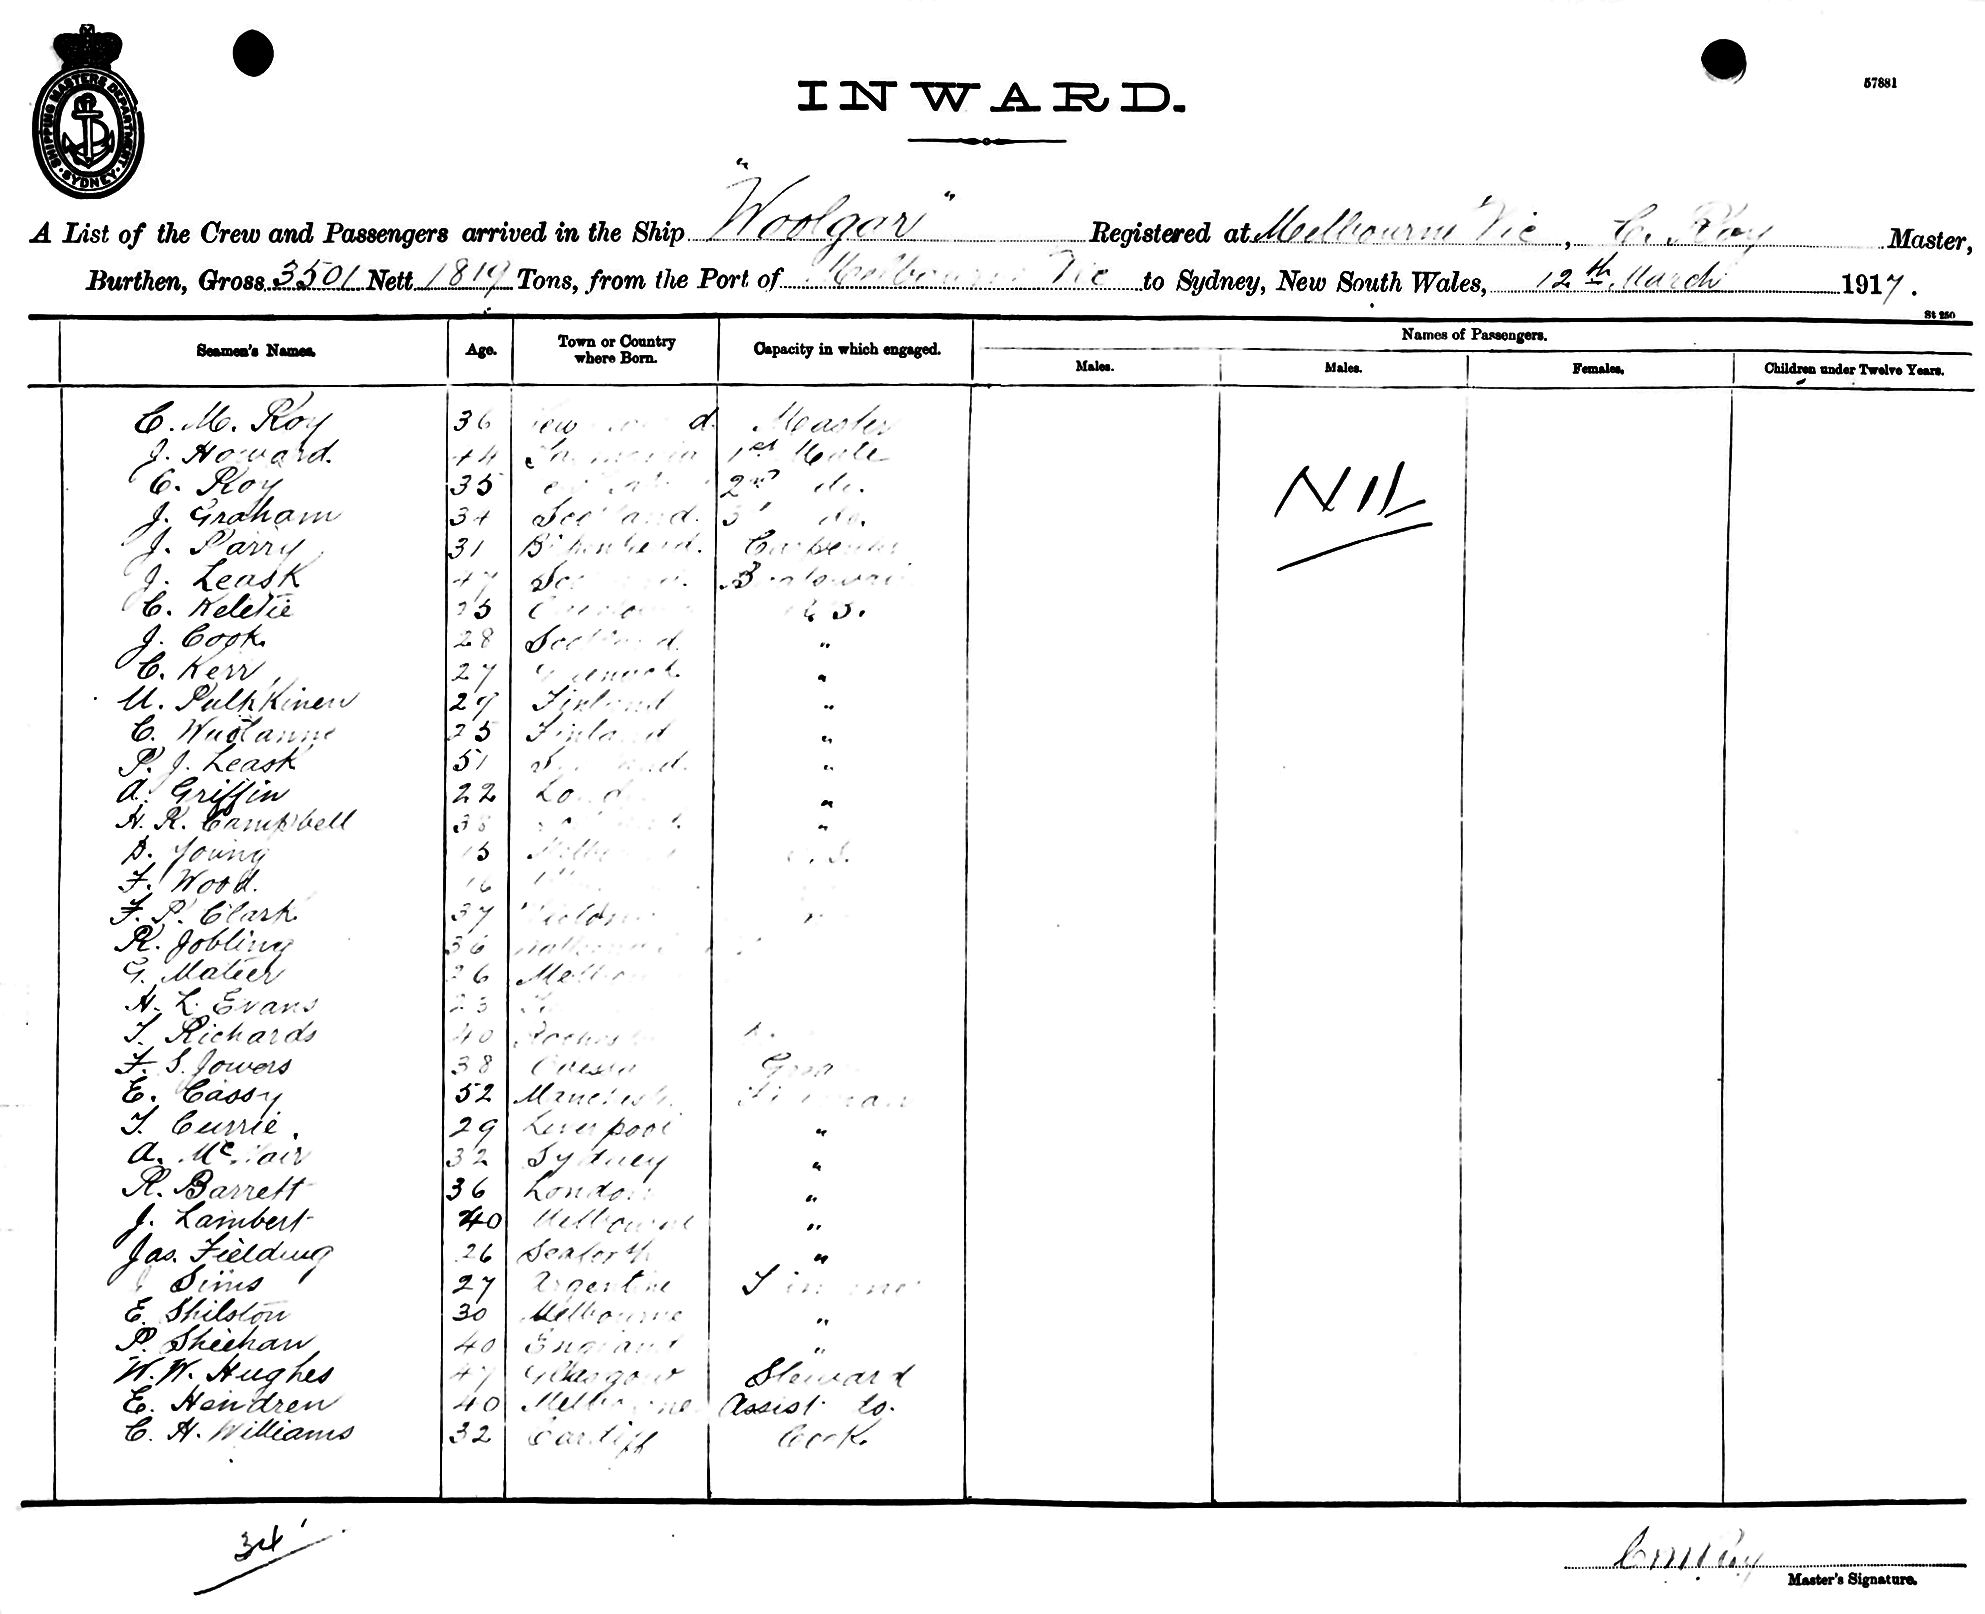 SHIPPING MASTERS DEPARTMENT SYDNEY
57881
INWARD.
A List of the Crew and Passengers arrived in the Ship "Woolgar" Registered at Melbourne Vic, C. Roy Master,
Burthen, Gross 3501 Nett 1819 Tons, from the Port of Melbourne Vic to Sydney, New South Wales, 12th March 1917.
St 250
Seamen's Names. Age. Town or Country where Born. Capacity in which engaged. Names of Passengers.
Males. Males. Females. Children under Twelve Years.
C. M. Roy 36 Master
J. Howard. 44 Tasmania 1st Mate
C. Roy 35 2nd do.
J. Graham 34 Scotland. 3 do.
J. Parry 31 Carpenter
J. Leask 47
C. Keletie
J. Cook 28 Scotland "
C. Kerr 27 Greenock "
U. Pulkkinen 29 Finland "
C. 25 Finland "
P. J. Leask 51 "
A. Griffin 22 London "
H. R. Campbell 38 "
D. Young 15
F. Wood. 16
F. P. Clark 37
R. Jobling 36
G. Matier 26
H. L. Evans 23
T. Richards 40
F. S. Jowers 38
E. Cassy 52 Manchester Fireman
T. Currie 29 Liverpool "
A. McNair 32 Sydney "
R. Barrett 36 London "
J. Lambert 40 Melbourne "
Jas. Fielding 26 Seaforth "
Sims 27 Argentine
E. Shilston 30 Melbourne "
P. Sheehan 40 England "
W. W. Hughes 47 Glasgow Steward
E. Hendren 40 Melbourne Assist do.
C. H. Williams 32 Cardiff Cook
NIL
34
C M Roy
Master's Signature.